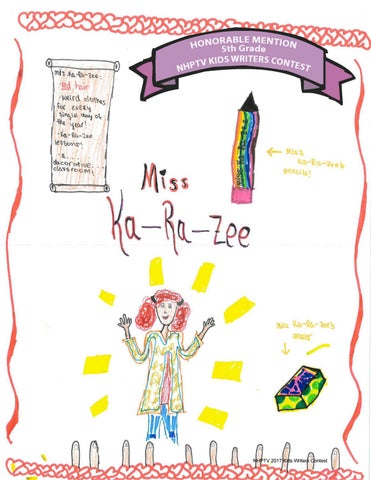 HONORABLE MENTION
5th Grade
NHPTV KIDS WRITERS CONTEST
Ms. Ka-Ra-Zee:
-Red hair
-Weird clothes
for every
single day of
the year!
-Ka-Ra-Zee
lessons!
-a
decorative
classroom!
Miss
Ka-Ra-Zee's
pencils!
Miss
Ka-Ra-Zee
Miss Ka-Ra-Zee's
eraser
NHPTV 2017 Kids Writers Contest